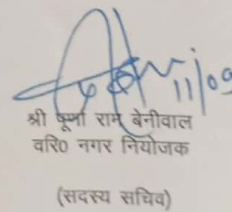 11/09
श्री पूर्णा राम बेनीवाल
वरि0 नगर नियोजक
(सदस्य सचिव)